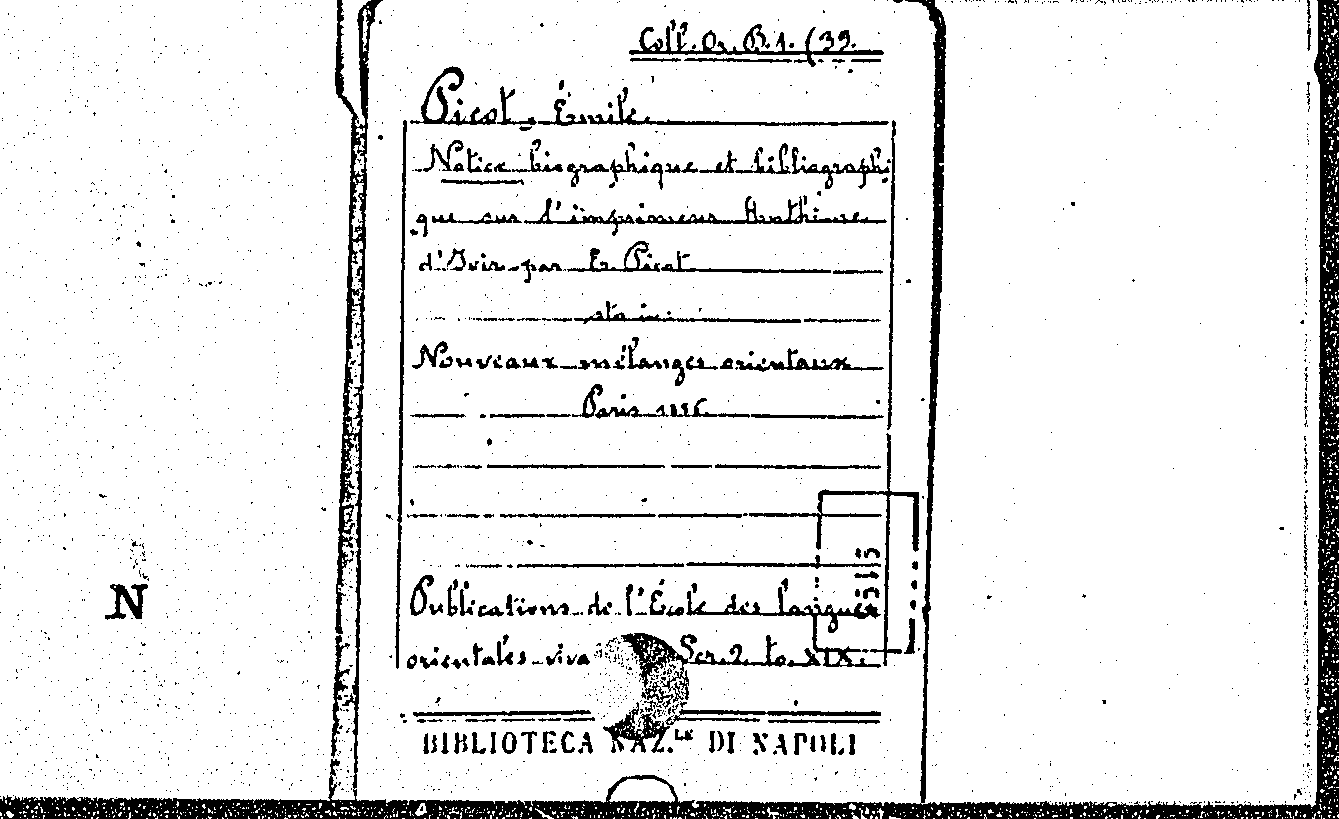 Coll. Or. B. 1. (39.
Picot, Émile.
Notice biographique et bibliographi
que sur l'imprimeur Anthime
d'Ivir par E. Picot
Nouveaux mélanges orientaux
Paris
Publications de l'École des langues
orientales viva Ser. 2. to. XIX.
BIBLIOTECA NAZ.LE DI NAPOLI
N